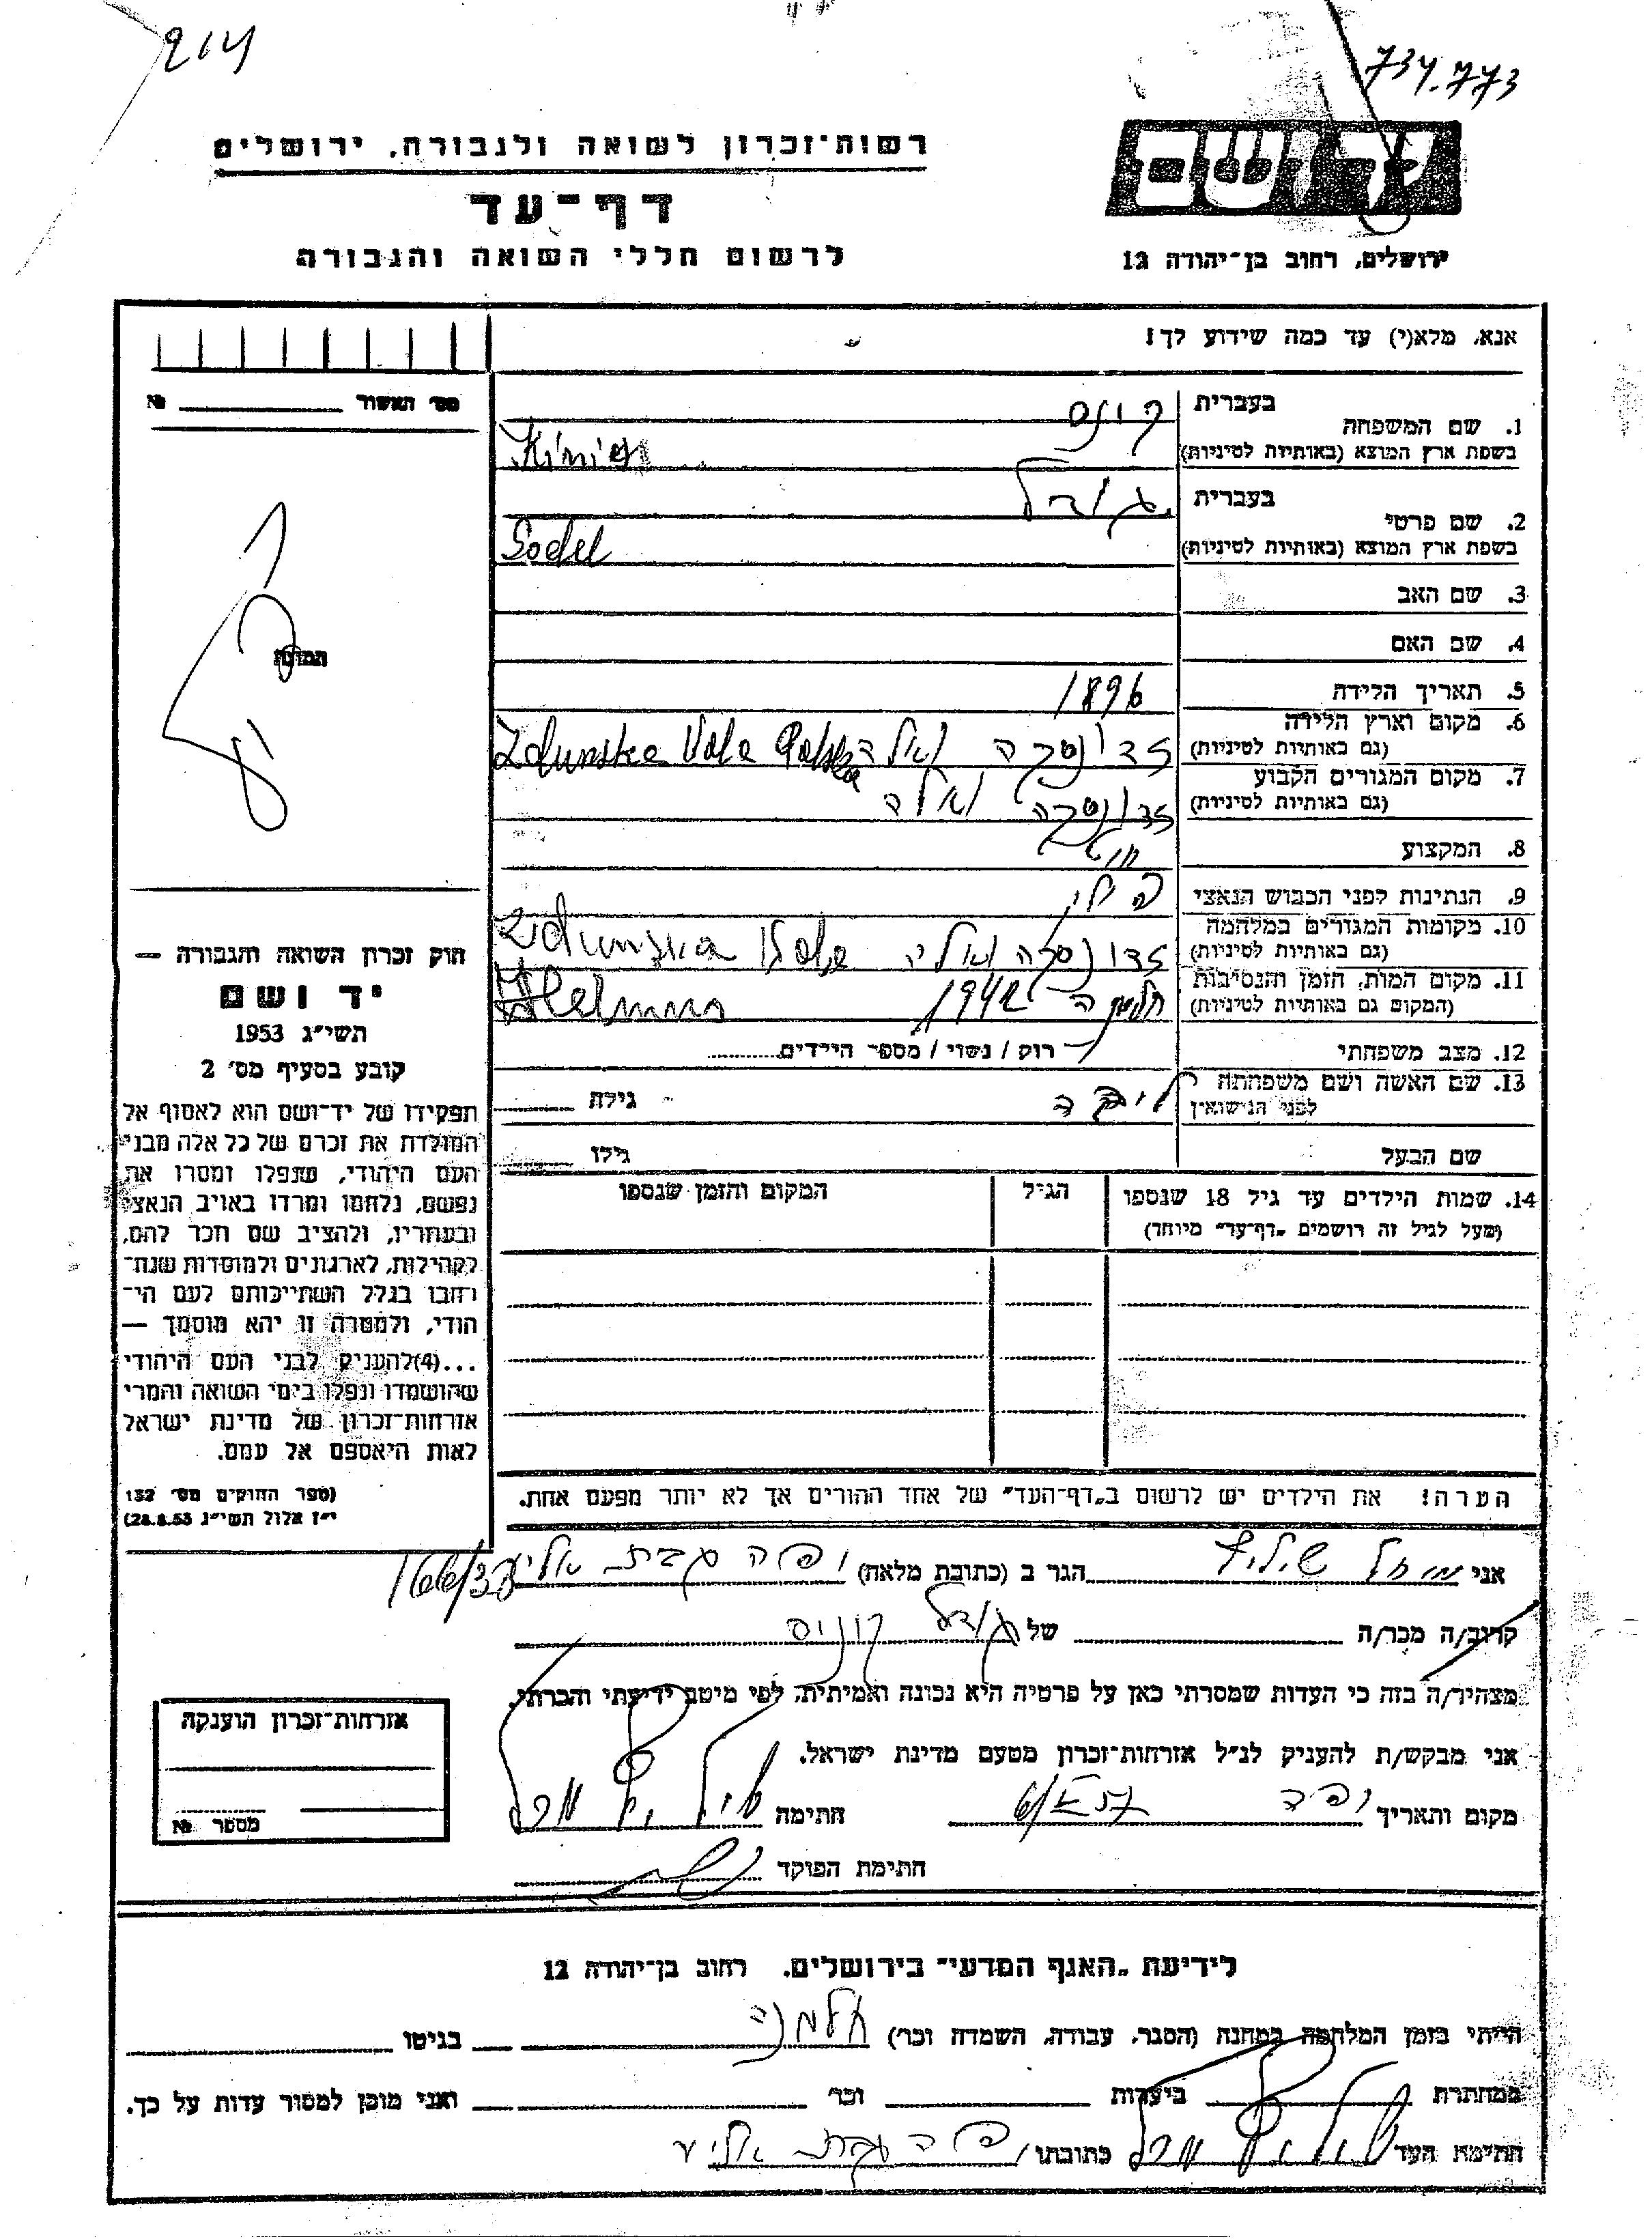 214
734.773
רשות־זכרון לשואה ולגבורה, ירושלים
דף־עד
לרשום חללי השואה והגבורה
ירושלים, רחוב בן־יהודה 12
אנא, מלא(י) עד כמה שידוע לך!
מס׳ האשור № 
1. שם המשפחה בעברית
בשפת ארץ המוצא (באותיות לטיניות)
2. שם פרטי בעברית
בשפת ארץ המוצא (באותיות לטיניות)
3. שם האב
4. שם האם
5. תאריך הלידה 1896
6. מקום וארץ הלידה
(גם באותיות לטיניות) זדונסקה וואלה Zdunska Vola Polska
7. מקום המגורים הקבוע
(גם באותיות לטיניות) זדונסקה וואלה
8. המקצוע
9. הנתינות לפני הכבוש הנאצי
10. מקומות המגורים במלחמה
(גם באותיות לטיניות) זדונסקה וואלה Zdunska Vola
11. מקום המות, הזמן והנסיבות
(המקום גם באותיות לטיניות) 1942
12. מצב משפחתי רוק / נשוי / מספר הילדים
13. שם האשה ושם משפחתה
לפני הנישואין גילה
שם הבעל גילו
14. שמות הילדים עד גיל 18 שנספו הגיל המקום והזמן שנספו
(מעל לגיל זה רושמים „דף־עד״ מיוחד)
הערה! את הילדים יש לרשום ב„דף־העד״ של אחד ההורים אך לא יותר מפעם אחת.
תמונה
חוק זכרון השואה והגבורה —
יד ושם
תשי״ג 1953
קובע בסעיף מס׳ 2
תפקידו של יד־ושם הוא לאסוף אל
המולדת את זכרם של כל אלה מבני
העם היהודי, שנפלו ומסרו את
נפשם, נלחמו ומרדו באויב הנאצי
ובעוזריו, ולהציב שם וזכר להם,
לקהילות, לארגונים ולמוסדות שנח־
רבו בגלל השתייכותם לעם הי־
הודי, ולמטרה זו יהא מוסמך —
...(4)להעניק לבני העם היהודי
שהושמדו ונפלו בימי השואה והמרי
אזרחות־זכרון של מדינת ישראל
לאות היאספם אל עמם.
(ספר החוקים מס׳ 132
י״ז אלול תשי״ג 28.8.53)
אני הגר ב (כתובת מלאה) יפה גבעת עליה 166/33
קרוב/ה מכר/ה של
מצהיר/ה בזה כי העדות שמסרתי כאן על פרטיה היא נכונה ואמיתית, לפי מיטב ידיעתי והכרתי.
אני מבקש/ת להעניק לנ״ל אזרחות־זכרון מטעם מדינת ישראל.
מקום ותאריך יפה חתימה
חתימת הפוקד
אזרחות־זכרון הוענקה
מספר №
לידיעת „האגף המדעי״ בירושלים, רחוב בן־יהודה 12
הייתי בזמן המלחמה במחנה (הסגר, עבודה, השמדה וכו׳) בגיטו
במחתרת ביערות וכו׳ ואני מוכן למסור עדות על כך.
חתימת העד כתובתו יפה